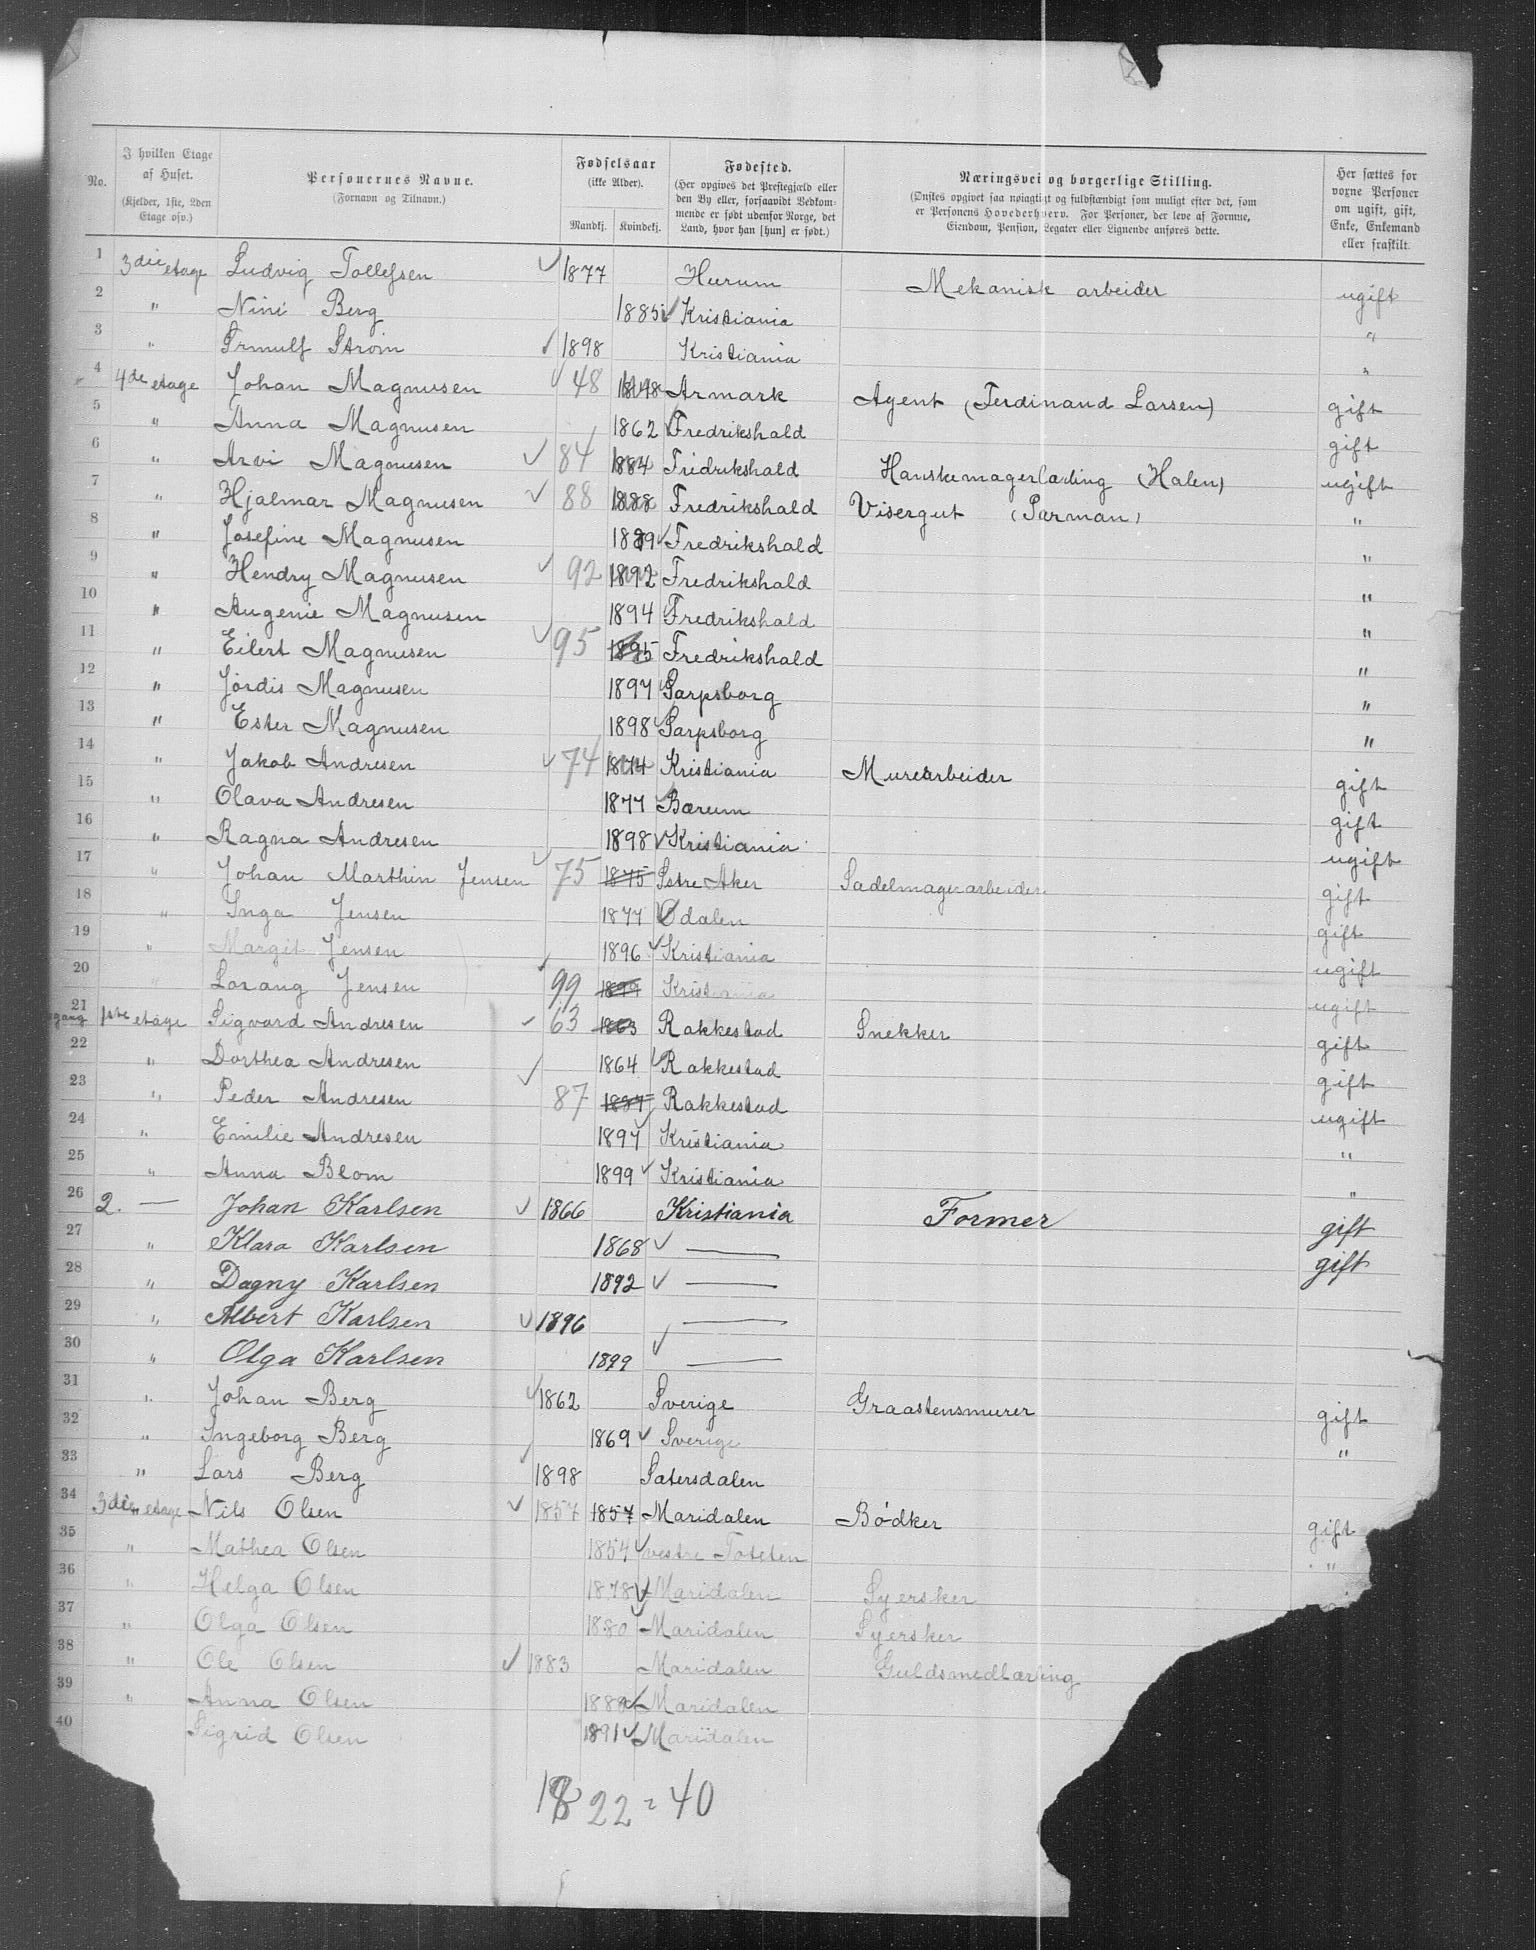 No. I hvilken Etage af Huset. (Kjelder, 1ste, 2den Etage osv.) Personernes Navne. (Fornavn og Tilnavn.) Fødselsaar (ikke Alder). Mandkj. Kvindekj. Fødested. (Her opgives det Prestegjæld eller den By eller, forsaavidt Vedkommende er født udenfor Norge, det Land, hvor han [hun] er født.) Næringsvei og borgerlige Stilling. (Ønskes opgivet saa nøiagtigt og fuldstændigt som muligt efter det, som er Personens Hovederhverv. For Personer, der leve af Formue, Eiendom, Pension, Legater eller Lignende anføres dette. Her sættes for voxne Personer om ugift, gift, Enke, Enkemand eller fraskilt.
1 3die etage Ludvig Tollefsen 1877 Hurum Mekanisk arbeider ugift
2 " Nini Berg 1885 Kristiania "
3 " Strøm 1898 Kristiania "
4 4de etage Johan Magnusen 48 1848 Armark Agent (Ferdinand Larsen) gift
5 " Anna Magnusen 1862 Fredrikshald gift
6 " Arvi Magnusen 84 1884 Fridrikshald Hanskemagerlærling (Halen) ugift
7 " Hjalmar Magnusen 88 1888 Fredrikshald Visergut (Parman) "
8 " Josefine Magnusen 1889 Fredrikshald "
9 " Hendry Magnusen 92 1892 Fredrikshald "
10 " Augenie Magnusen 1894 Fredrikshald "
11 " Eilert Magnusen 95 1895 Fredrikshald "
12 " Jørdis Magnusen 1897 Sarpsborg "
13 " Ester Magnusen 1898 Sarpsborg "
14 " Jakob Andresen 74 1874 Kristiania Murerarbeider gift
15 " Olava Andresen 1877 Bærum gift
16 " Ragna Andresen 1898 Kristiania ugift
17 " Johan Marthin Jensen 75 1875 Østre Aker Sadelmagerarbeider gift
18 " Inga Jensen 1877 Ødalen gift
19 " Margit Jensen 1896 Kristiania ugift
20 " Lorang Jensen 99 1899 Kristiania ugift
21 gang 1ste etage Sigvard Andresen 63 1863 Rakkestad Snekker gift
22 " Dorthea Andresen 1864 Rakkestad gift
23 " Peder Andresen 87 1887 Rakkestad ugift
24 " Emilie Andresen 1897 Kristiania "
25 " Anna Blom 1899 Kristiania "
26 2. — Johan Karlsen 1866 Kristiania Former gift
27 " Klara Karlsen 1868 — gift
28 " Dagny Karlsen 1892 —
29 " Albert Karlsen 1896 —
30 " Olga Karlsen 1899 —
31 " Johan Berg 1862 Sverige Graastensmurer gift
32 " Ingeborg Berg 1869 Sverige "
33 " Lars Berg 1898 Satersdalen
34 3die etage Nils Olsen 1857 1857 Maridalen Bødker gift
35 " Mathea Olsen 1854 vestre Toteten "
36 " Helga Olsen 1878 Maridalen Syersker "
37 " Olga Olsen 1880 Maridalen Syersker
38 " Ole Olsen 1883 Maridalen Guldsmedlærling
39 " Anna Olsen 1888 Maridalen
40 Sigrid Olsen 1891 Maridalen
18 22 = 40